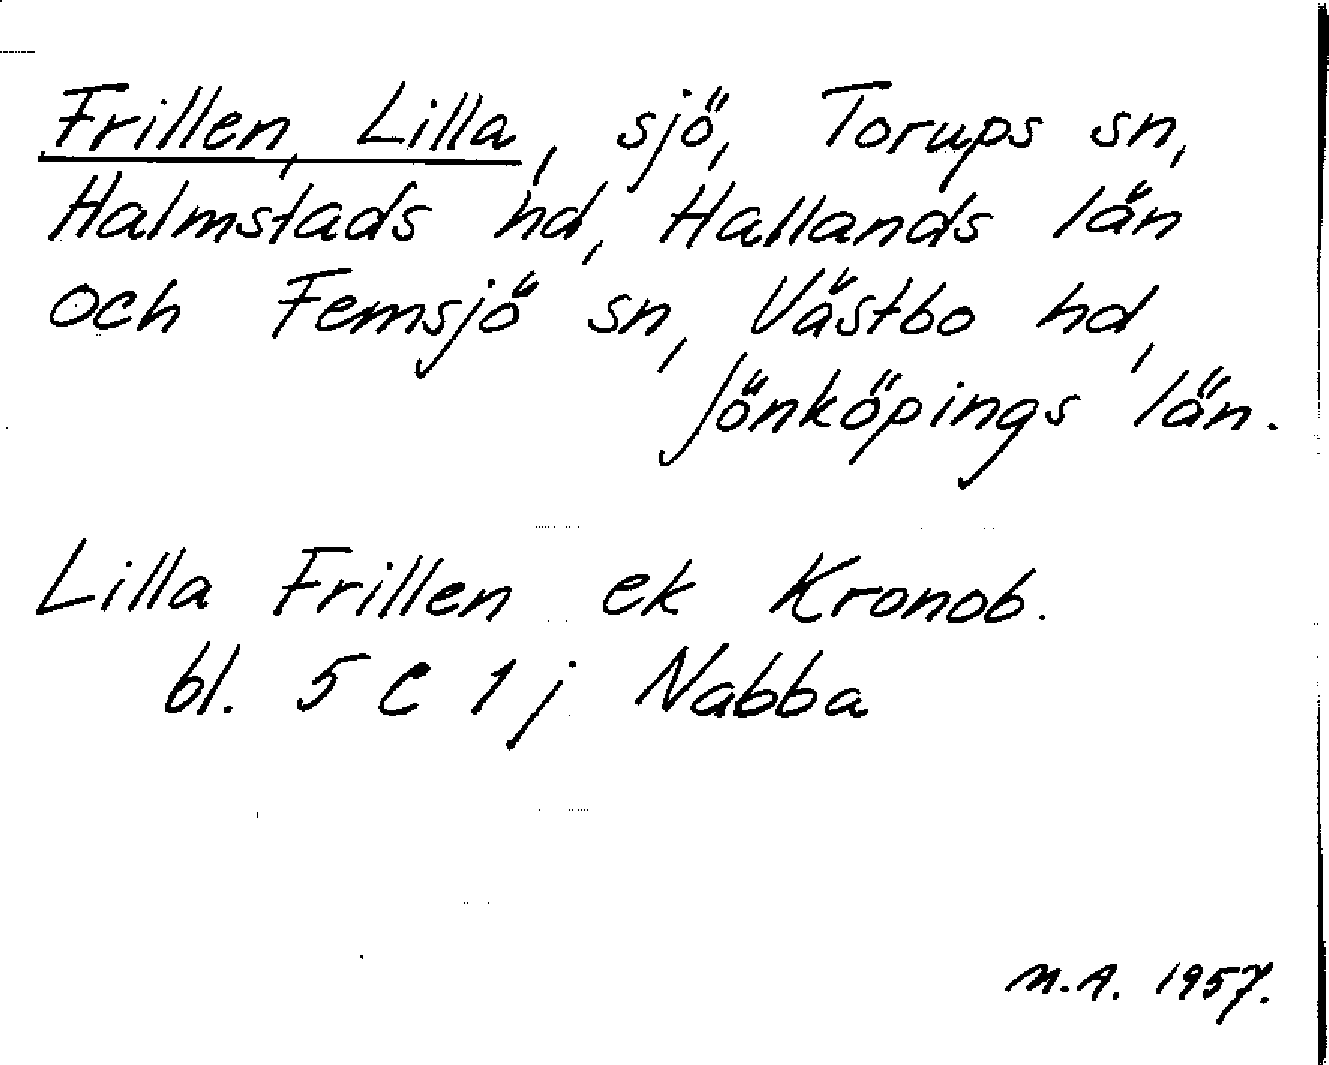 Frillen, Lilla, sjö, Torups sn,
Halmstads hd, Hallands län
och Femsjö sn, Västbo hd,
Jönköpings län.
Lilla Frillen ek Kronob.
bl. 5 C 1 j Nabba
M.A. 1957.